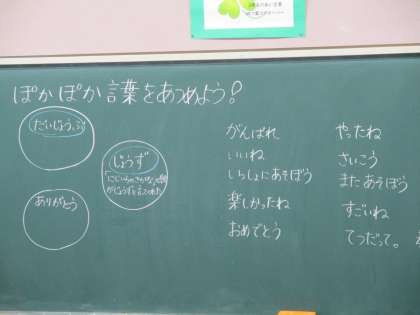 ぽかぽか言葉をあつめよう!
だいじょうぶ
じょうず
ありがとう
がんばれ
いいね
いっしょにあそぼう
楽しかったね
おめでとう
やったね
さいこう
またあそぼう
すごいね
てつだって。